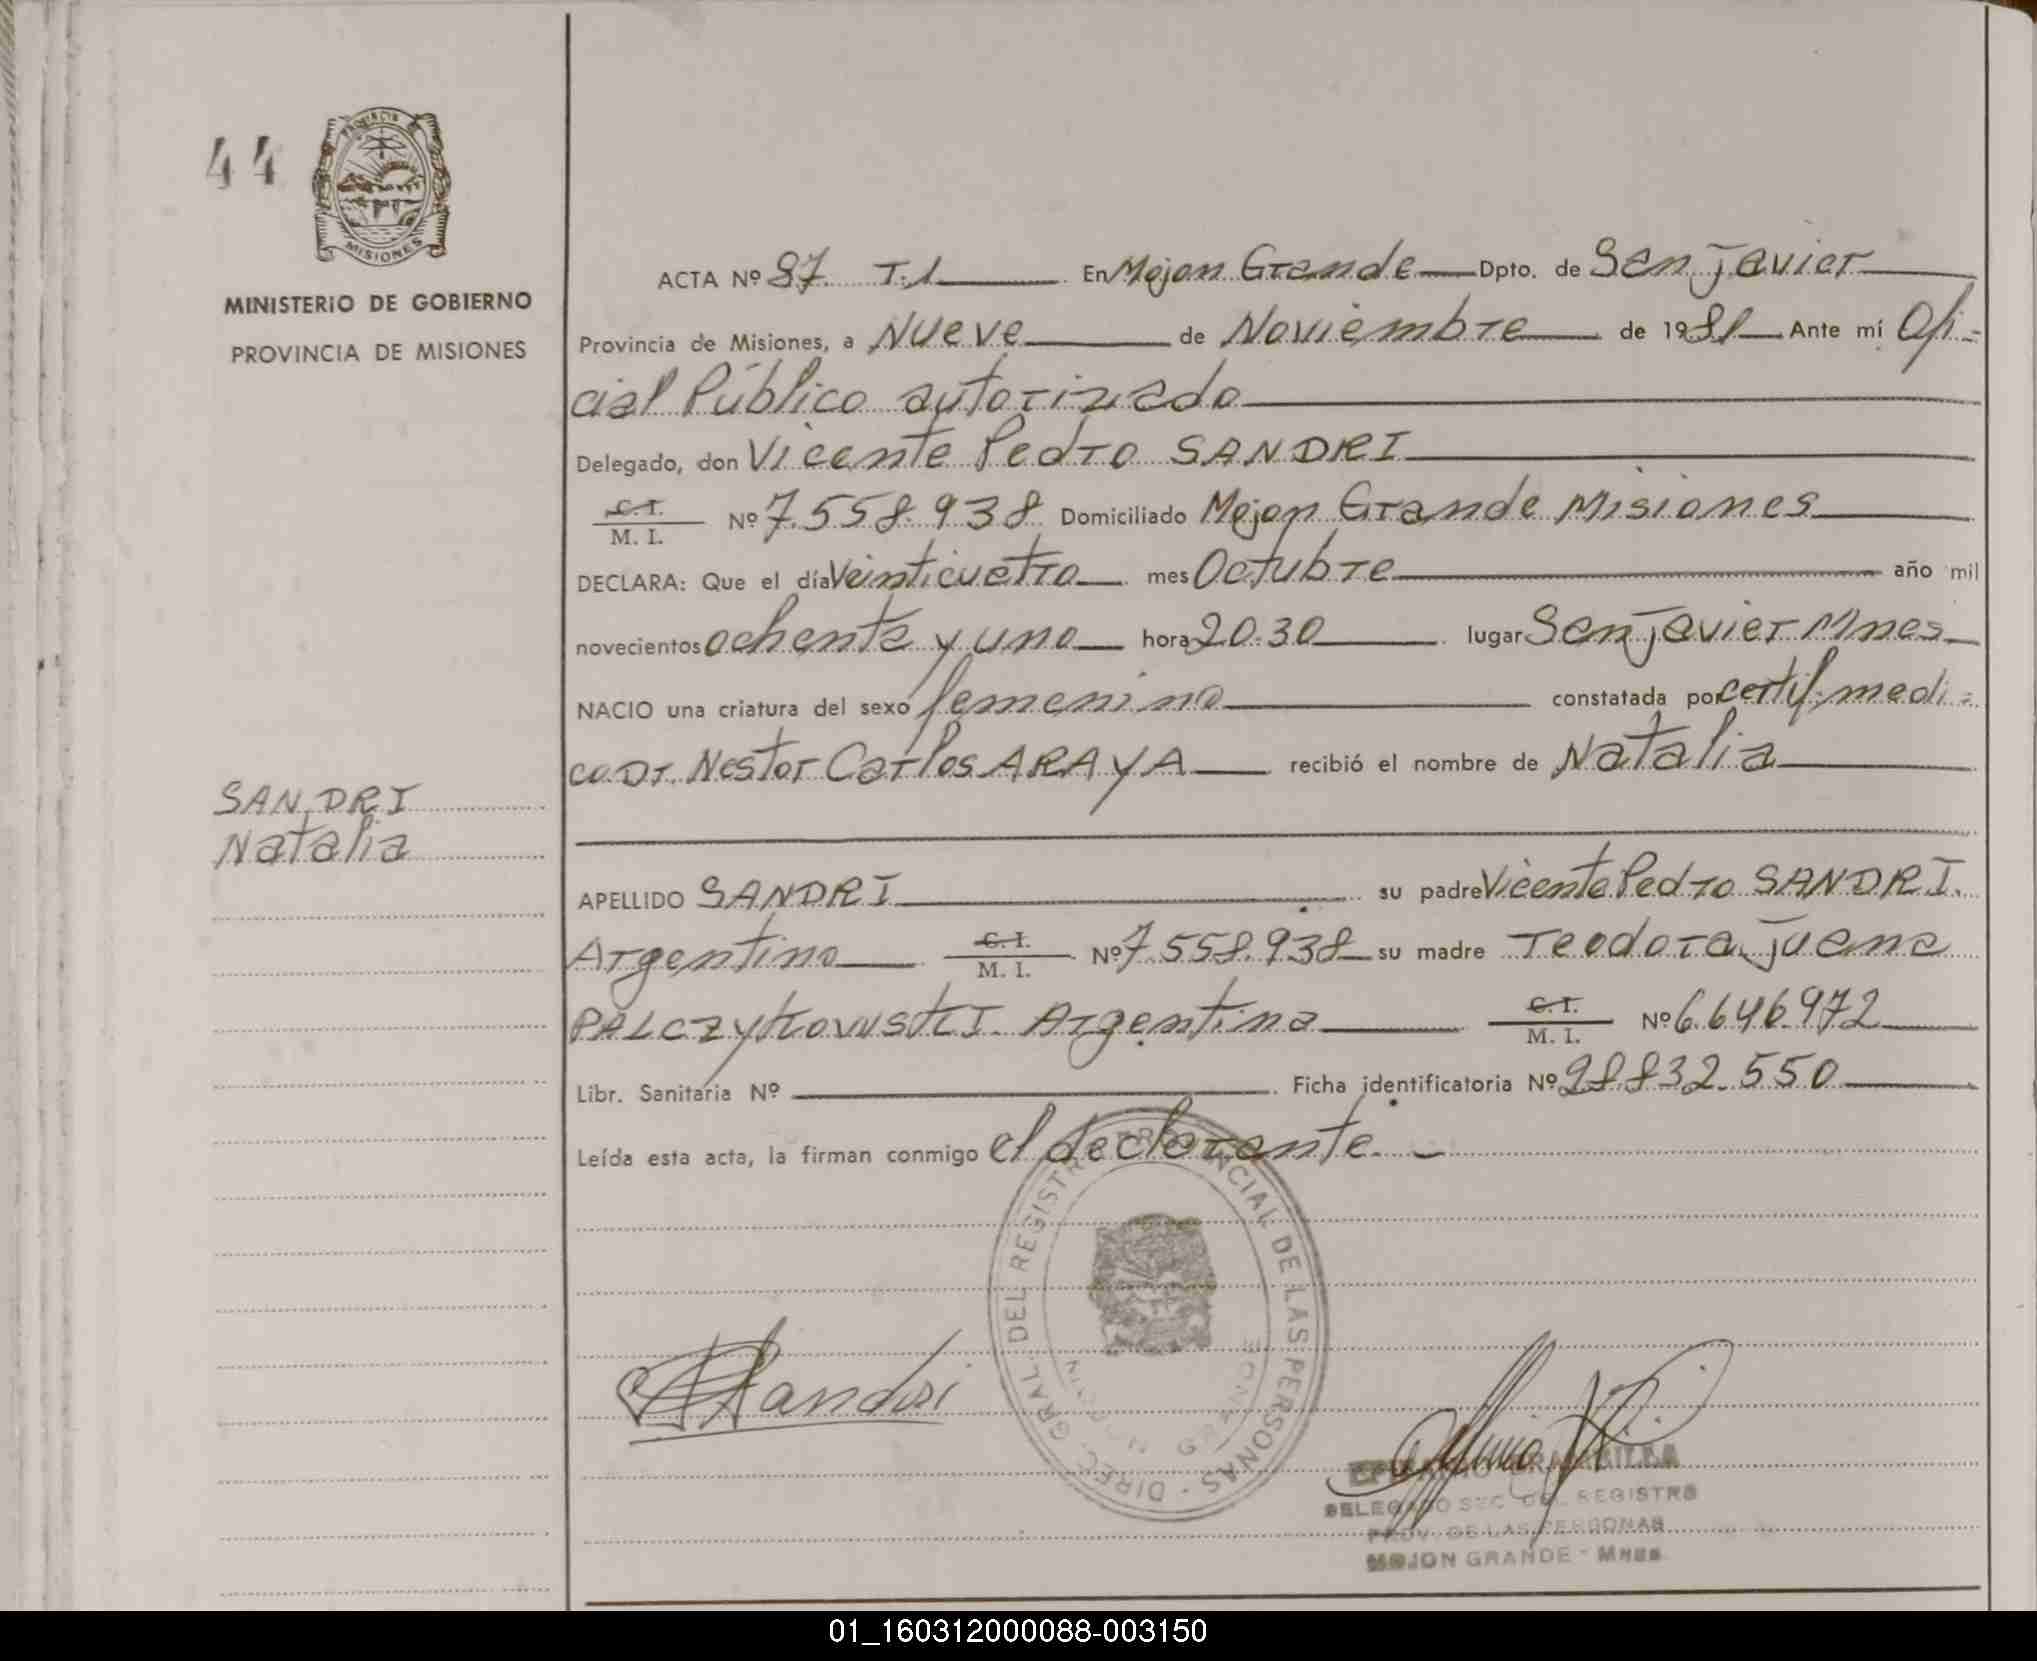 44
PROVINCIA
MISIONES
MINISTERIO DE GOBIERNO
PROVINCIA DE MISIONES
ACTA Nº 87. T.1 En Mojon Grande Dpto. de San Javier
Provincia de Misiones, a Nueve de Noviembre de 1981 Ante mí Ofi-
cial Público autorizado
Delegado, don Vicente Pedro SANDRI
C.I.
M. I. Nº 7.558.938 Domiciliado Mojon Grande Misiones
DECLARA: Que el día Veinticuatro mes Octubre año mil
novecientos ochenta y uno hora 20.30 lugar San Javier Mnes
NACIO una criatura del sexo femenino constatada por certif. medi-
co Dr. Nestor Carlos ARAYA recibió el nombre de Natalia
SANDRI
Natalia
APELLIDO SANDRI su padre Vicente Pedro SANDRI.
Argentino C.I. M. I. Nº 7.558.938 su madre Teodora Juana
PALCZYKOWSKI Argentina C.I. M. I. Nº 6.646.972
Libr. Sanitaria Nº Ficha identificatoria Nº 28.832.550
Leída esta acta, la firman conmigo el declarante.
DIREC. GRAL DEL REGISTRO PROVINCIAL DE LAS PERSONAS
MOJON GRANDE
Sandri
DELEGADO SEC. DEL REGISTRO
PROV. DE LAS PERSONAS
MOJON GRANDE - Mnes.
01_160312000088-003150